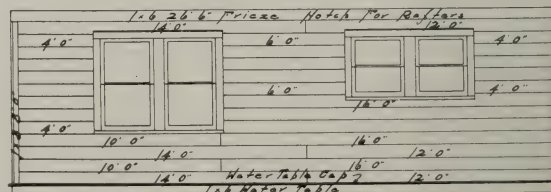 1-6 26' 6" Frieze Notch For Rafters
14' 0" 12' 0"
4' 0" 6' 0" 4' 0"
6' 0" 4' 0"
16' 0"
4' 0"
10' 0" 16' 0"
14' 0" 12' 0"
10' 0" 16' 0"
Water Table Cap
14' 0" 12' 0"
Water Table